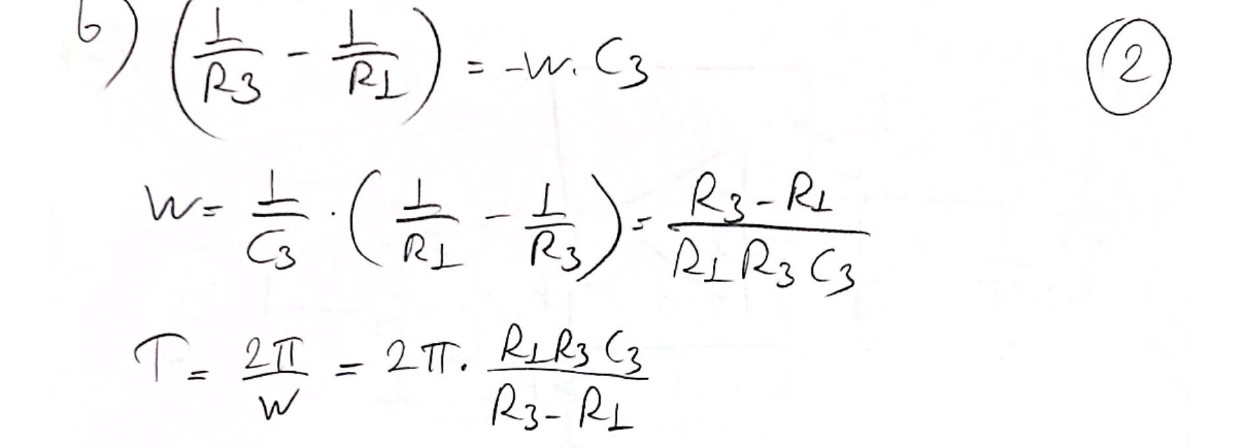 b) (1/R3 - 1/R1) = -w. C3
2
w = 1/C3 · (1/R1 - 1/R3) = (R3 - R1)/(R1 R3 C3)
T = 2π/w = 2π · (R1 R3 C3)/(R3 - R1)